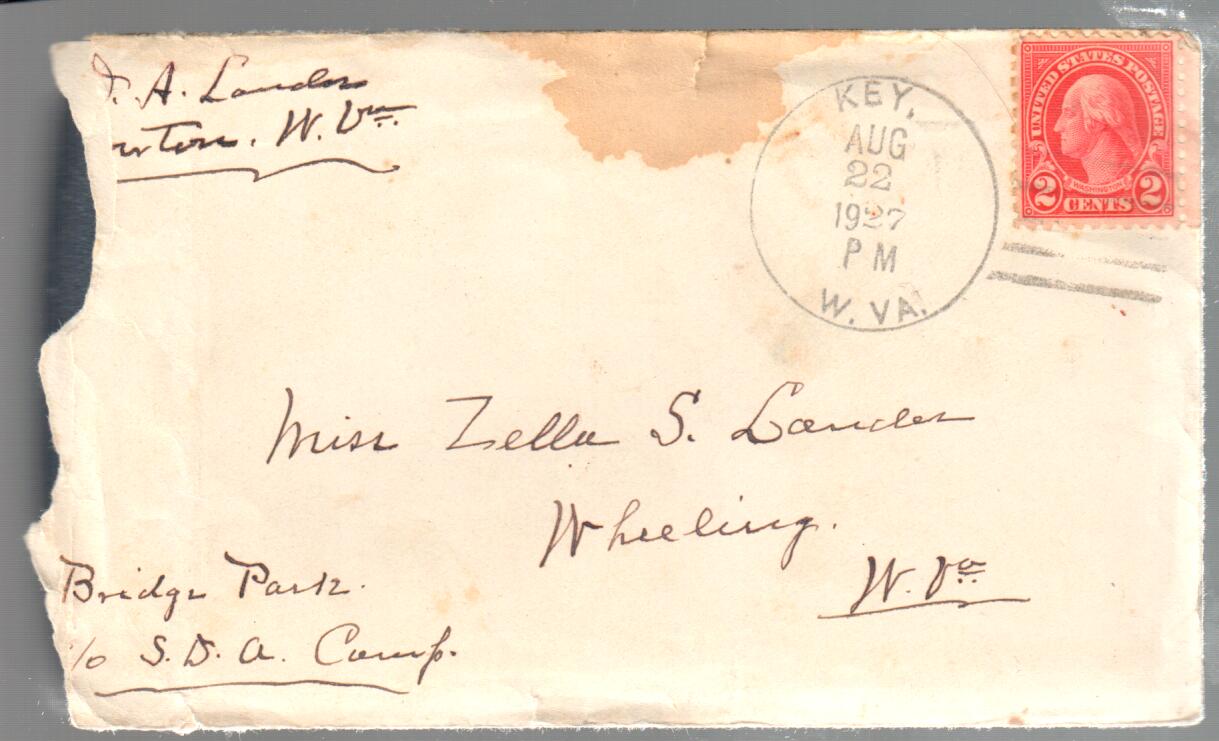 J. A. Lander
W. Va.
KEY,
AUG
22
1927
PM
W. VA.
UNITED STATES POSTAGE
WASHINGTON
2 CENTS 2
Miss Zella S. Lander
Wheeling.
W. Va
Bridge Park.
c/o S. D. A. Camp.